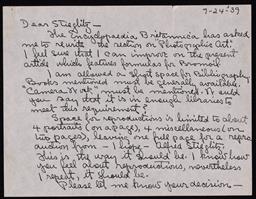 7-24-39
Dear Stieglitz -
The Encyclopaedia Britannica has asked
me to rewrite the "section on Photographic Art."
I feel sure that I can improve on the present
article which features formulas for Bromoil
I am allowed a short space for Bibliography
Books mentioned must be generally available.
"Camera Work" must be mentioned. Would
you say that it is in enough libraries to
meet this requirement?
Space for reproductions is limited to about
4 portraits (on a page), 4 miscellaneous (on
two pages), leaving one full page for a repro-
duction from - I hope - Alfred Stieglitz.
This is the way it should be. I know how
you feel about reproductions, nevertheless
I repeat, it should be.
Please let me know your decision -